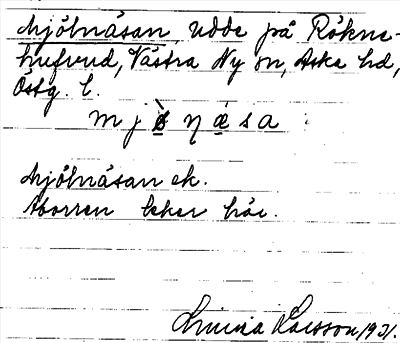 Mjölnäsan, udde på Rökne-
hufvud, Västra Ny sn, Aska hd,
Östg. l.
m j ö̀ ŋ ǽ s a
Mjölnäsan ek.
Aborren leker här.
Linnea Larsson 1931.